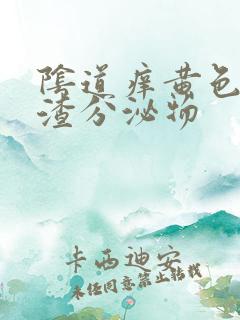 陰道痒黄色
渣分泌物
卡西迪安
未经同意禁止转载